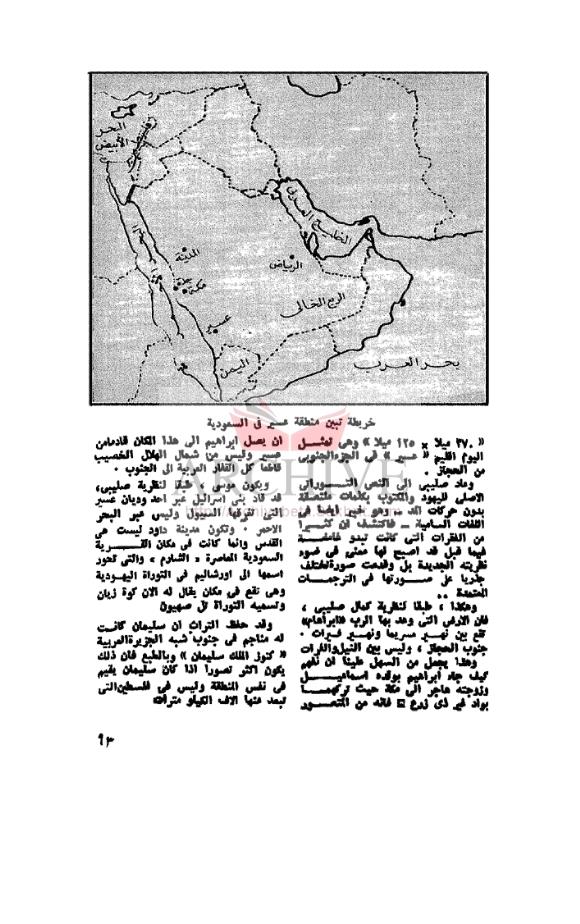 البحر
الأبيض
الخليج العربى
المدينة
الرياض
جدة
مكة
الربع الخالى
عسير
اليمن
بحر العرب
خريطة تبين منطقة عسير فى السعودية
« ٣٧٠ ميلا × ١٢٥ ميلا » وهى تمثل
اليوم اقليم « عسير » فى الجزء الجنوبى
من الحجاز .
وعاد صليبى الى النص التوراتى
الاصلى لليهود والمكتوب بكلمات ملتصقة
بدون حركات المد .. وهو خبير ايضا فى
اللغات السامية ــ فاكتشف ان كثيرا
من الفقرات التى كانت تبدو غامضة
فيما قبل قد اصبح لها معنى فى ضوء
نظريته الجديدة بل وقدمت صورة تختلف
جذريا عن صورتها فى الترجمات
المعتمدة ..
وهكذا ، طبقا لنظرية كمال صليبى ،
فان الارض التى وعد بها الرب «ابراهام»
تقع بين نهير سريما ونهير فيرات .
جنوب الحجاز ، وليس بين النيل والفرات
وهذا يجعل من السهل علينا ان نفهم
كيف جاء ابراهيم بولده اسماعيل
وزوجته هاجر الى مكة حيث تركهما
بواد غير ذى زرع فانه من المتصور
ان يصل ابراهيم الى هذا المكان قادما من
عسير وليس من شمال الهلال الخصيب
قاطعا كل القفار العربية الى الجنوب .
ويكون موسى ، طبقا لنظرية صليبى،
قد قاد بنى اسرائيل عبر احد وديان عسير
التى تغرقها السيول وليس عبر البحر
الاحمر . وتكون مدينة داود ليست هى
القدس وانما كانت فى مكان القرية
السعودية المعاصرة « الشارم » والتى تحور
اسمها الى اورشاليم فى التوراة اليهودية
وهى تقع فى مكان يقال له الان كوة زيان
وتسميه التوراة تل صهيون
وقد حفظ التراث ان سليمان كانت
له مناجم فى جنوب شبه الجزيرة العربية
« كنوز الملك سليمان » وبالطبع فان ذلك
يكون اكثر تصورا اذا كان سليمان يقيم
فى نفس المنطقة وليس فى فلسطين التى
تبعد عنها الاف الكيلو مترات
ARCHIVE
٩٣